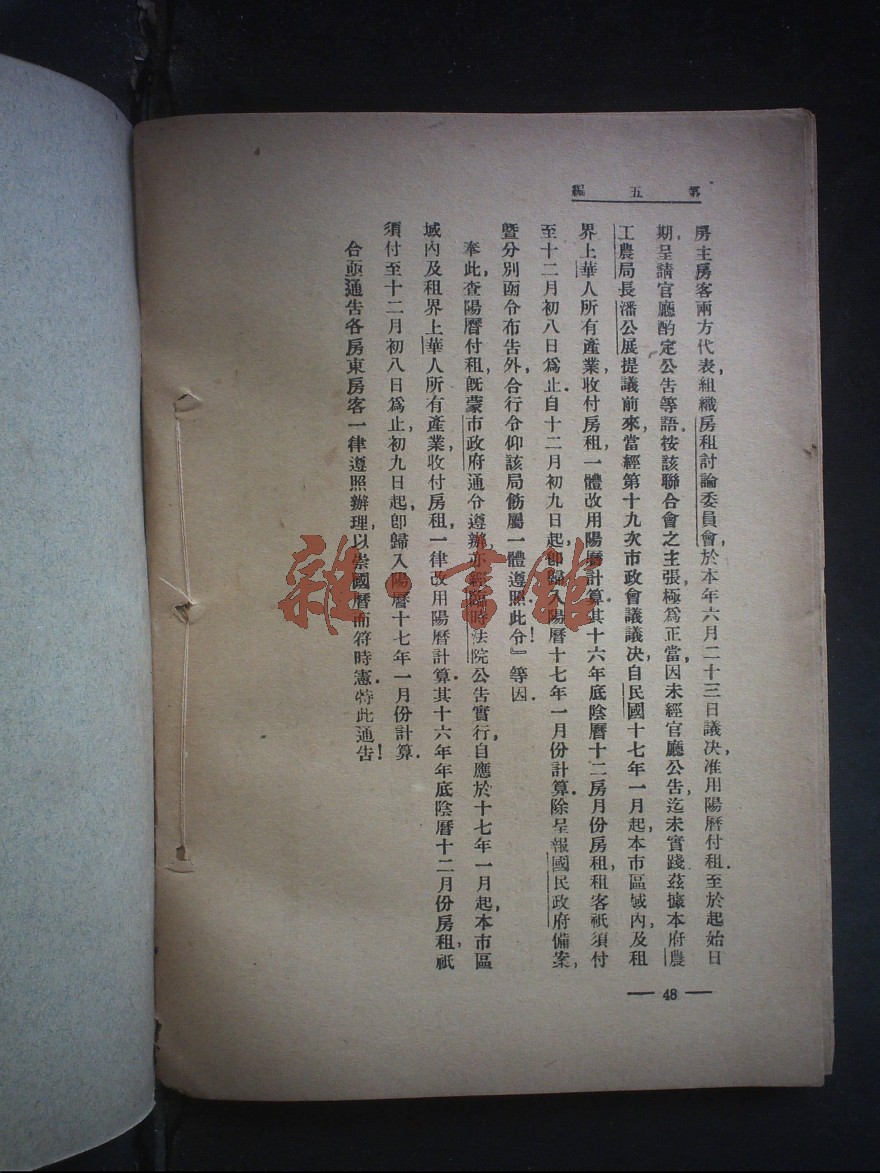 第五編
房主房客兩方代表,組織房租討論委員會,於本年六月二十三日議決,准用陽曆付租.至於起始日
期,呈請官廳酌定公告等語.按該聯合會之主張,極爲正當,因未經官廳公告,迄未實踐茲據本府農
工農局長潘公展提議前來,當經第十九次市政會議議決,自民國十七年一月起,本市區域內,及租
界上華人所有產業,收付房租,一體改用陽曆計算.其十六年底陰曆十二房月份房租,租客祇須付
至十二月初八日爲止.自十二月初九日起,卽歸入陽曆十七年一月份計算.除呈報國民政府備案,
曁分別函令布告外,合行令仰該局飭屬一體遵照.此令!』等因.
奉此,查陽曆付租,旣蒙市政府通令遵辦,亦經臨時法院公告實行,自應於十七年一月起,本市區
域內及租界上華人所有產業,收付房租,一律改用陽曆計算.其十六年年底陰曆十二月份房租,祇
須付至十二月初八日爲止,初九日起,卽歸入陽曆十七年一月份計算.
合亟通告各房東房客一律遵照辦理,以崇國曆而符時憲.特此通告!
— 48 —
雜·書館